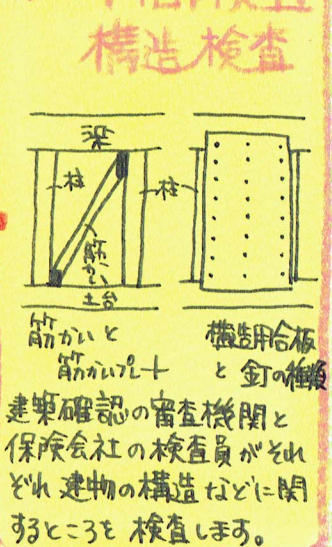 構造検査
梁
柱
柱
筋かい
土台
筋かいと
筋かいプレート
構造用合板
と釘の種類
建築確認の審査機関と
保険会社の検査員がそれ
ぞれ建物の構造などに関
するところを検査します。